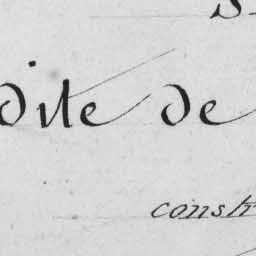 dite de
const